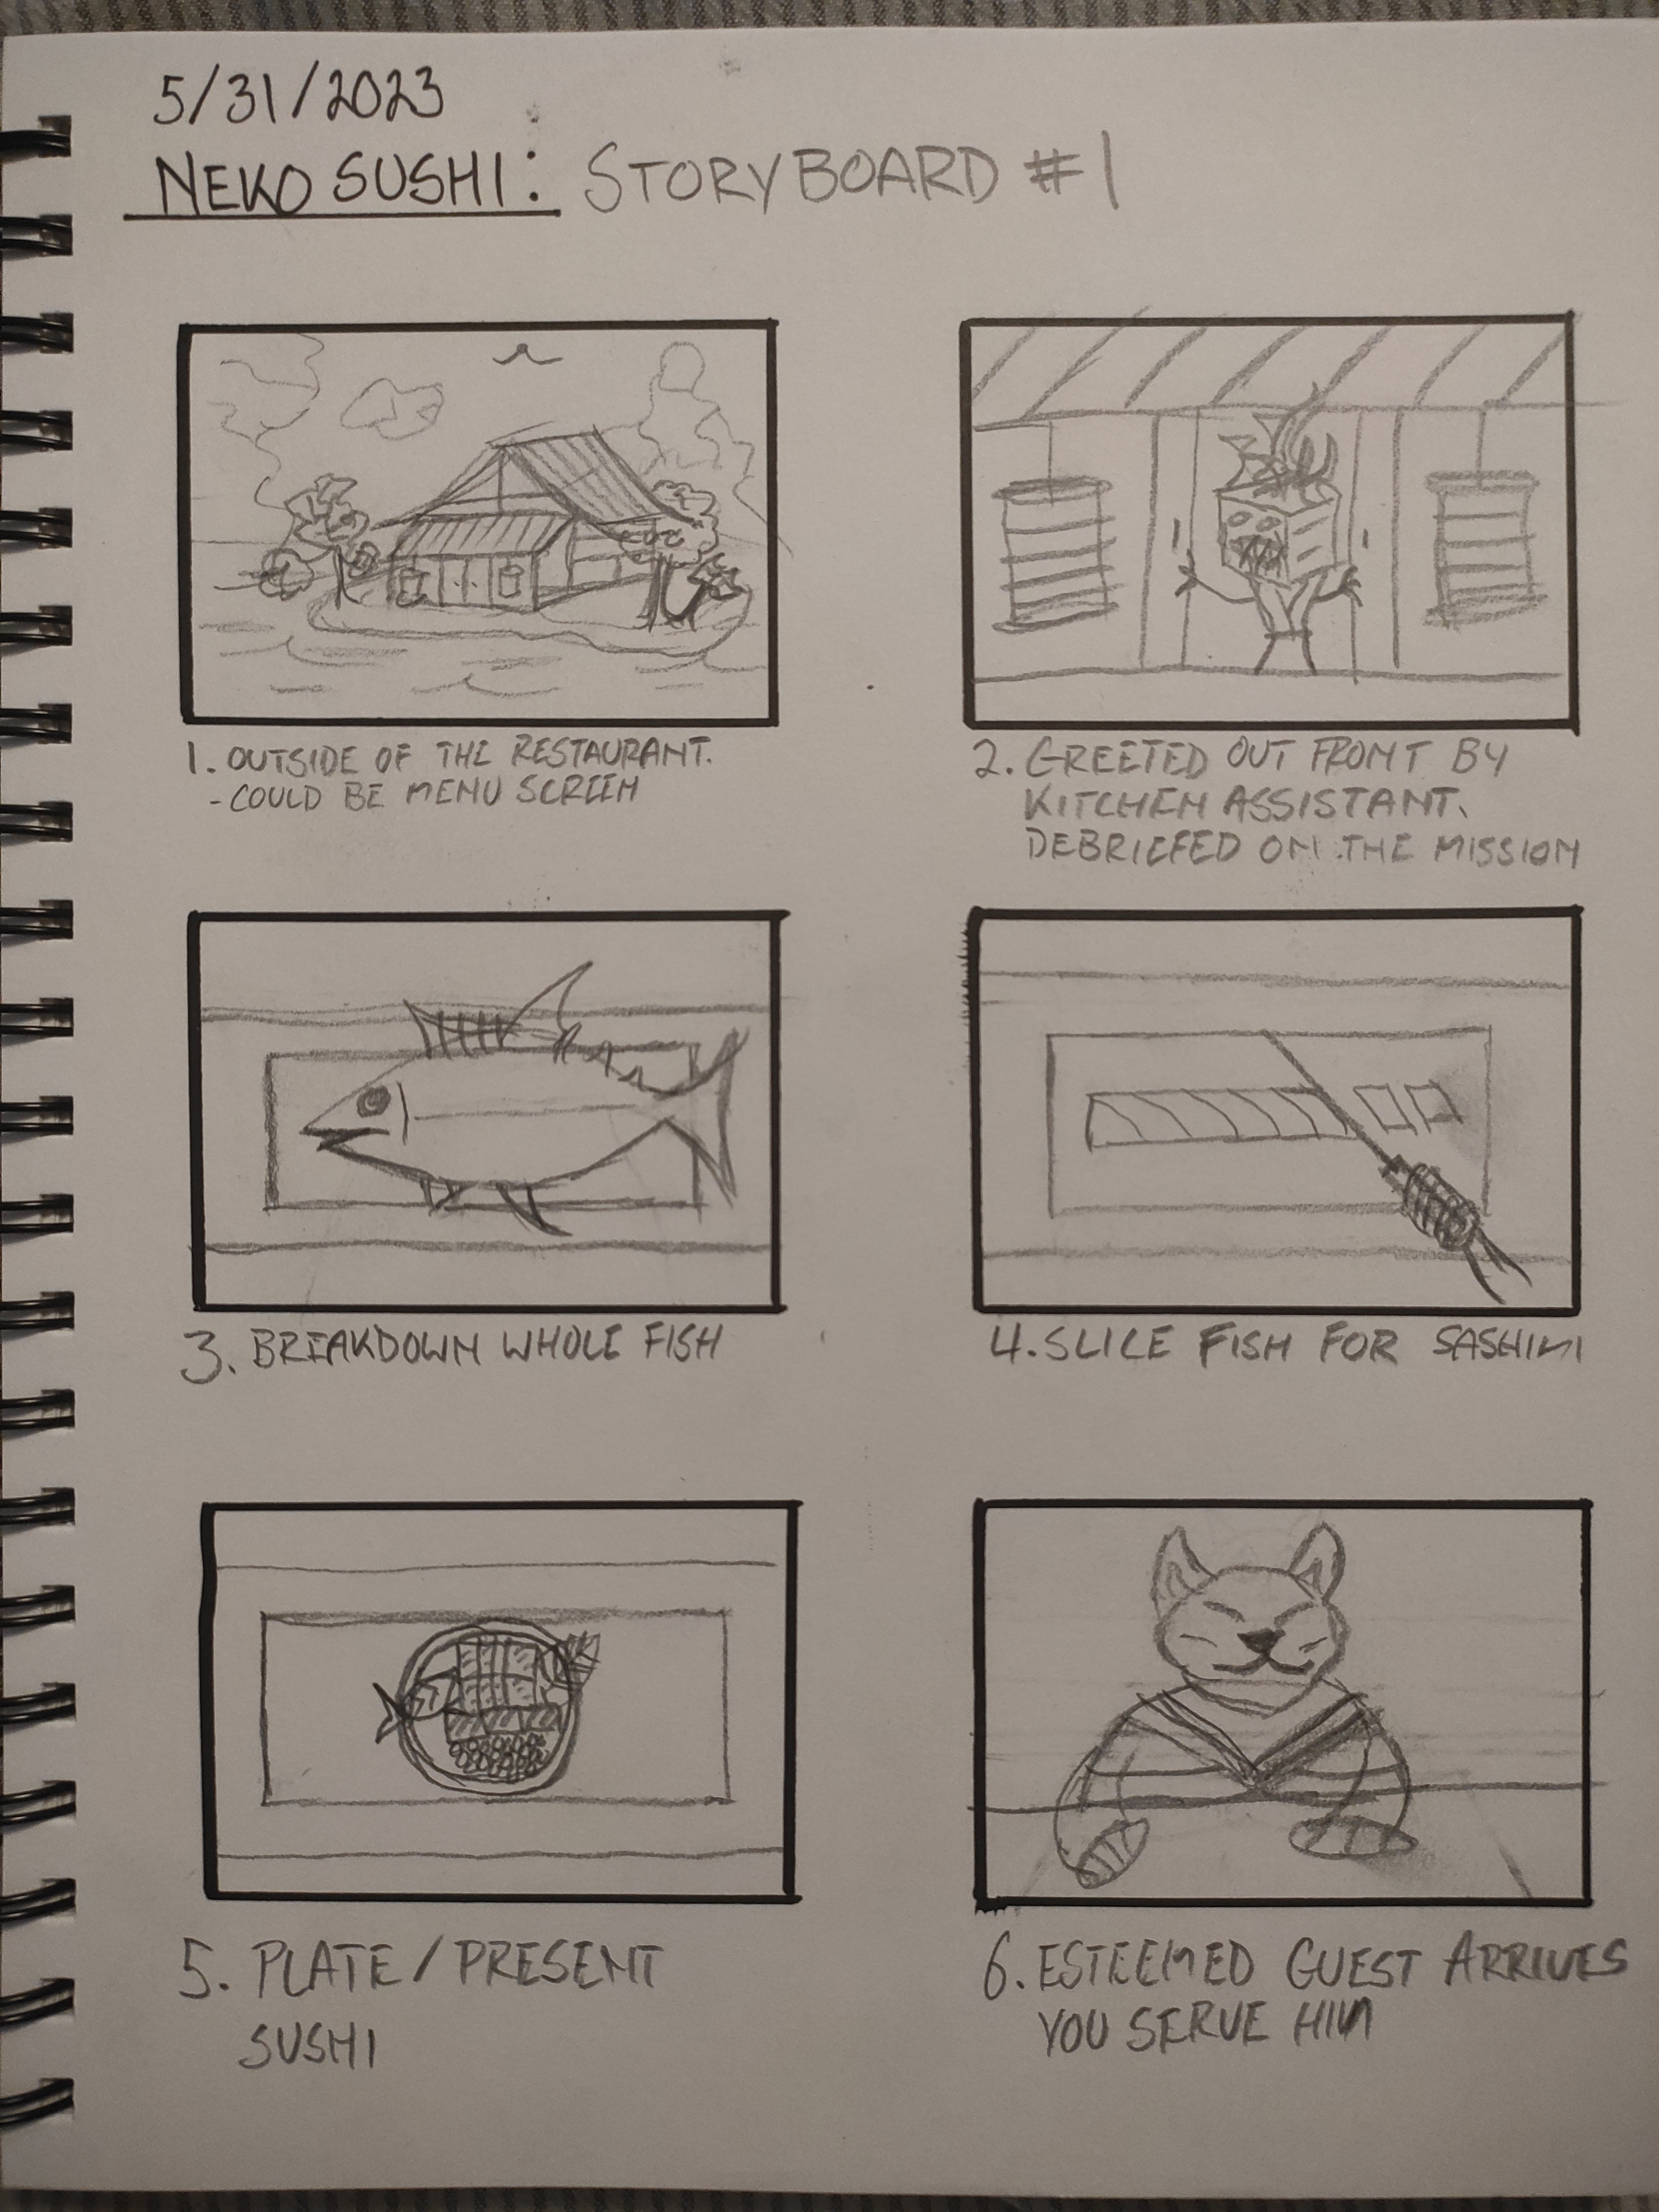 5/31/2023
NEKO SUSHI: STORYBOARD #1
1. OUTSIDE OF THE RESTAURANT.
- COULD BE MENU SCREEN
2. GREETED OUT FRONT BY
KITCHEN ASSISTANT.
DEBRIEFED ON THE MISSION
3. BREAKDOWN WHOLE FISH
4. SLICE FISH FOR SASHIMI
5. PLATE/PRESENT
SUSHI
6. ESTEEMED GUEST ARRIVES
YOU SERVE HIM